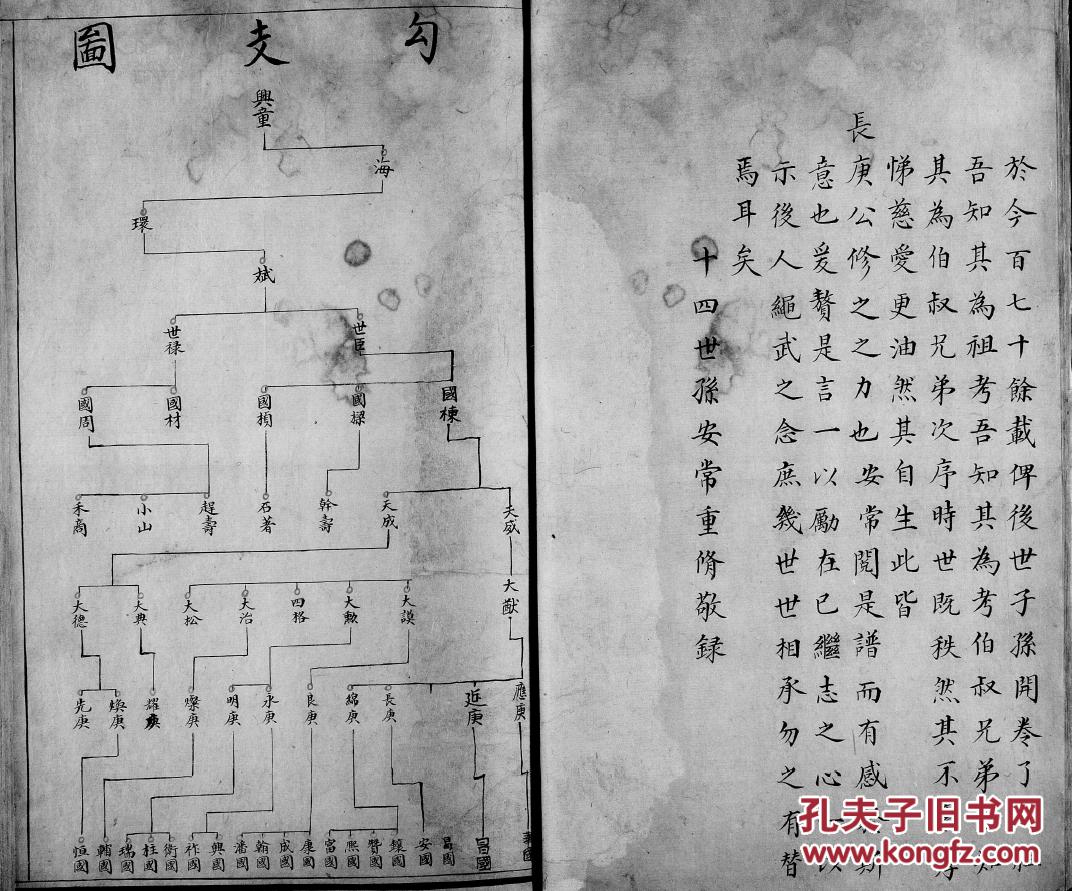 於今百七十餘載俾後世子孫開卷了
吾知其為祖考吾知其為考伯叔兄弟
其為伯叔兄弟次序時世既秩然其不
悌慈愛更油然其自生此皆
長庚公修之之力也安常閱是譜而有感
意也爰贅是言一以勵在己繼志之心一以
示後人繩武之念庶幾世世相承勿之有替
焉耳矣
十四世孫安常重脩敬録
勾支圖
興童
海
環
斌
世臣 世禄
國棟 國樑 國楨 國材 國周
天成 幹壽 石著 趕壽 小山 禾商
大猷 大謨 大勲 四格 大治 大松 大典 大德
應庚 近庚 長庚 錦庚 良庚 永庚 明庚 燦庚 耀庚 煥庚 先庚
昌國 昌國 安國 鎮國 贊國 熙國 富國 康國 成國 翰國 潘國 興國 祚國 衛國 柱國 瑞國 輔國 恒國
孔夫子旧书网
www.kongfz.com